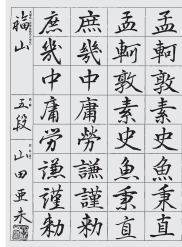 孟軻敦素史魚秉直
孟軻敦素史魚秉直
庶幾中庸勞謙謹勅
庶幾中庸労謙謹勅
福山 五段 山田亜未